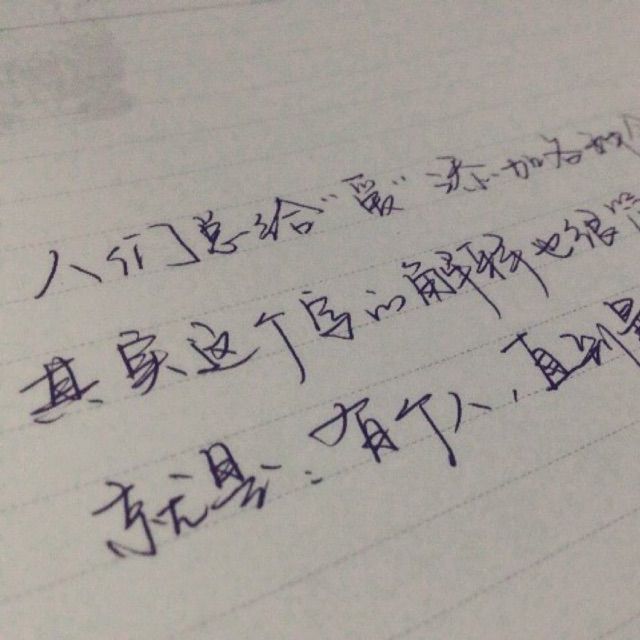 人们总给“爱”添加各种
其实这个字的解释也很简
就是：有个人，直到最